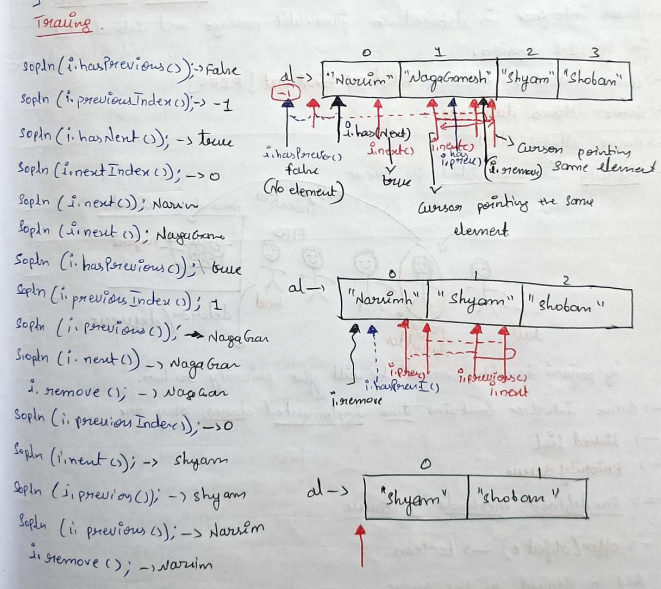 Traring
Sopln (i.hasPrevious());-> False
Sopln (i.previousIndex();-> -1
Sopln (i.hasNent ()); -> true
Sopln (i.nentIndex(); -> 0
Sopln (i.nent()); Narim
Sopln (i.nent(); NagaGane
Sopln (i.hasPrevious()); true
Sopln (i.previousIndex(); 1
Sopln (i.previous()); -> NagaGan
Sopln (i.nent()) -> NagaGan
i.remove (); -> NagaGan
Sopln (i.previousIndex()); -> 0
Sopln (i.nent()); -> Shyam
Sopln (i.previou()); -> Shyam
Sopln (i.previous()); -> Narsim
i.remove (); -> Narsim
0 1 2 3
al -> "Narsim" "NagaGanesh" "Shyam" "Shoban"
-1
i.hasPrevior()
false
(No element)
i.has(Next)
i.next()
true
i.next()
i.has
prev()
(i.remove)
Cursor pointing
same element
Cursor pointing the same
element
0 1 2
al -> "Narsimh" "Shyam" "Shoban"
i.remove
i.hasPrevI()
i.prev()
i.previous()
i.nent
0 1
al -> "Shyam" "Shoban"